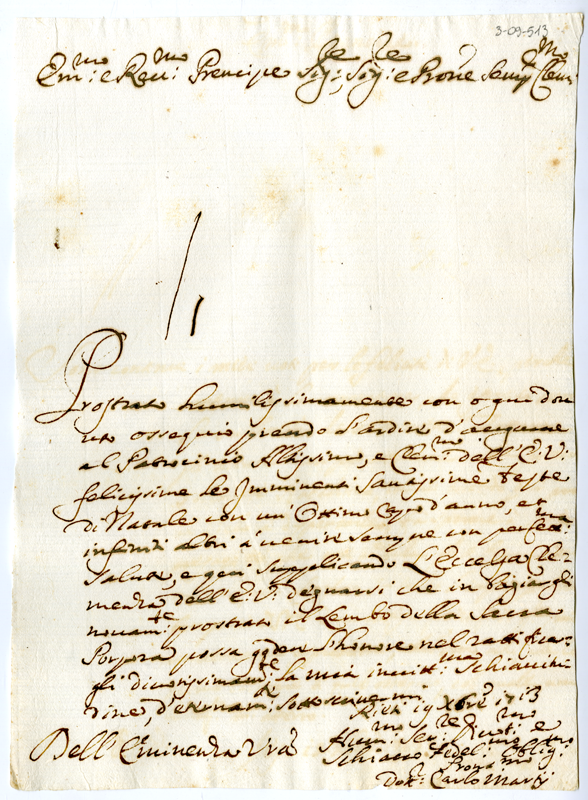 3-09-513
Em:mo e Reu:mo Prencipe Sig:re, Sig:re e Prone Semp Clem:mo
Prostrato humilissimamente con ogni dou
uto ossequio prendo l'ardire d'augurare
al Patrocinio Altissimo, e Clem:mo dell'E: V:
felicissime le Imminenti Santissime Feste
di Natale con un' Ottimo capo d'anno, et
infiniti altri à uenire sempre con perfett:ma
Salute, e qui supplicando L'Eccelsa Cle-
menza dell'E: V: degnarsi che in
nouam:te prostrato il Lembo della Sacra
Porpora possa goder l'honore nel ratifficar-
gli diuotissimam:te la mia inuitt:ma Schiauitu-
dine, d'eternam:te sottoscriuermi
Rieti 19 Xbre 1713
Dell'Eminenza Vra
Hum:mo Ser:re Diuot:mo e
Schiauo Fedel:mo Oblig:mo
Dott: Carlo Marij